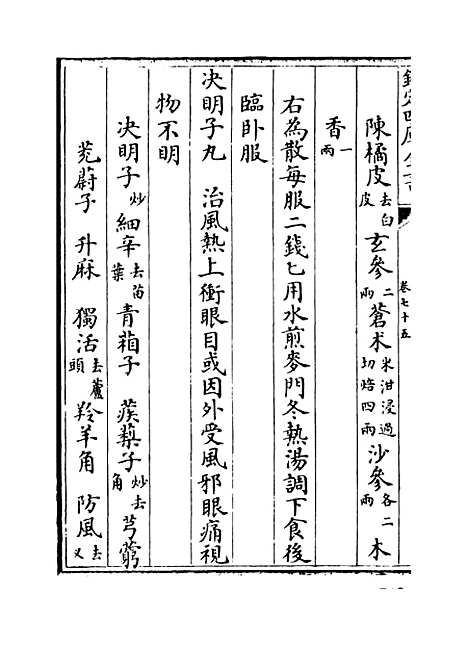 卷七十五
陳橘皮去白皮 玄參二兩 蒼术米泔浸過切焙四兩 沙參各二兩 木
香一兩
右為散每服二錢匕用水煎麥門冬熱湯調下食後
臨卧服
决明子丸 治風熱上衝眼目或因外受風邪眼痛視
物不明
决明子炒 細辛去苗葉 青葙子 蒺䔧子炒去角 芎藭
茺蔚子 升麻 獨活去蘆頭 羚羊角 防風去叉